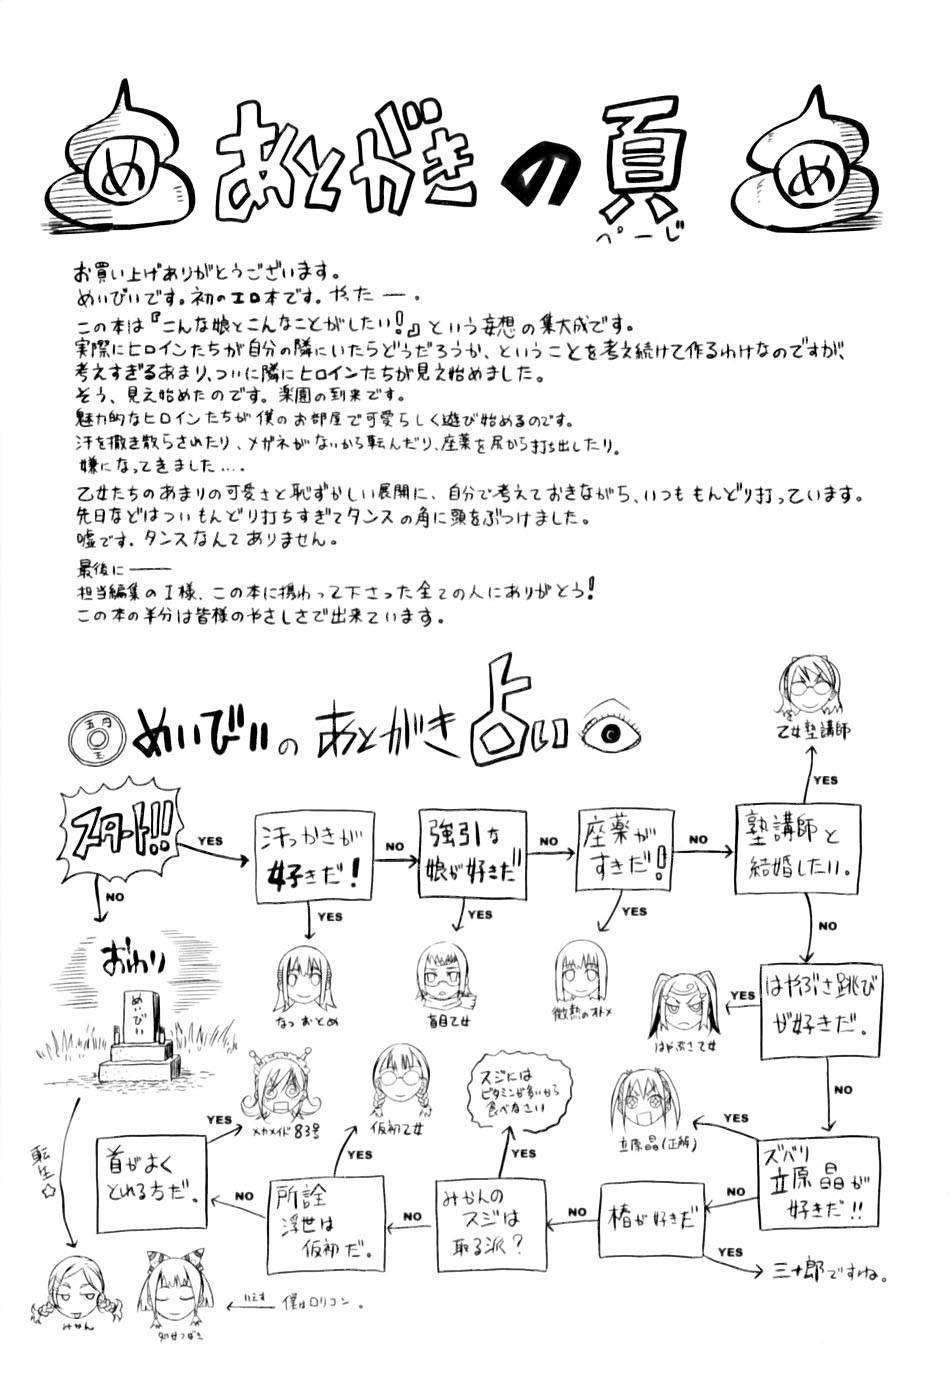 め
あとがきの頁
ぺーじ
め
お買い上げありがとうございます。
めいびいです。初のエロ本です。やったー。
この本は『こんな娘とこんなことがしたい!』という妄想の集大成です。
実際にヒロインたちが自分の隣にいたらどうだろうか、ということを考え続けて作るわけなのですが、
考えすぎるあまり、ついに隣にヒロインたちが見え始めました。
そう、見え始めたのです。楽園の到来です。
魅力的なヒロインたちが僕のお部屋で可愛らしく遊び始めるのです。
汗を撒き散らされたり、メガネがないから転んだり、座薬を尻から打ち出したり。
嫌になってきました....
乙女たちのあまりの可愛さと恥ずかしい展開に、自分で考えておきながら、いつももんどり打っています。
先日などはついもんどり打ちすぎてタンスの角に頭をぶつけました。
嘘です。タンスなんてありません。
最後に――
担当編集のI様、この本に携わって下さった全ての人にありがとう!
この本の半分は皆様のやさしさで出来ています。
五円
玉
めいびいのあとがき占い
乙女塾講師
YES
スタート!!
YES
汗っかきが
好きだ!
NO
強引な
娘が好きだ
NO
座薬が
すきだ!
NO
塾講師と
結婚したい。
NO
YES
YES
YES
NO
おわり
めいびい
なつおとめ
盲目乙女
微熱のオトメ
はやぶさ乙女
YES
はやぶさ跳び
が好きだ。
NO
転生☆
メカメイド83号
仮初乙女
スジには
ビタミンが多いから
食べなさい
立原晶(正解)
YES
ズバリ
立原晶が
好きだ!!
NO
椿が好きだ
YES
三十郎ですね。
NO
みかんの
スジは
取る派?
YES
NO
所詮
浮世は
仮初だ。
YES
NO
首がよく
とれる方だ。
YES
みかん
処女つばき
いえす
僕はロリコン。